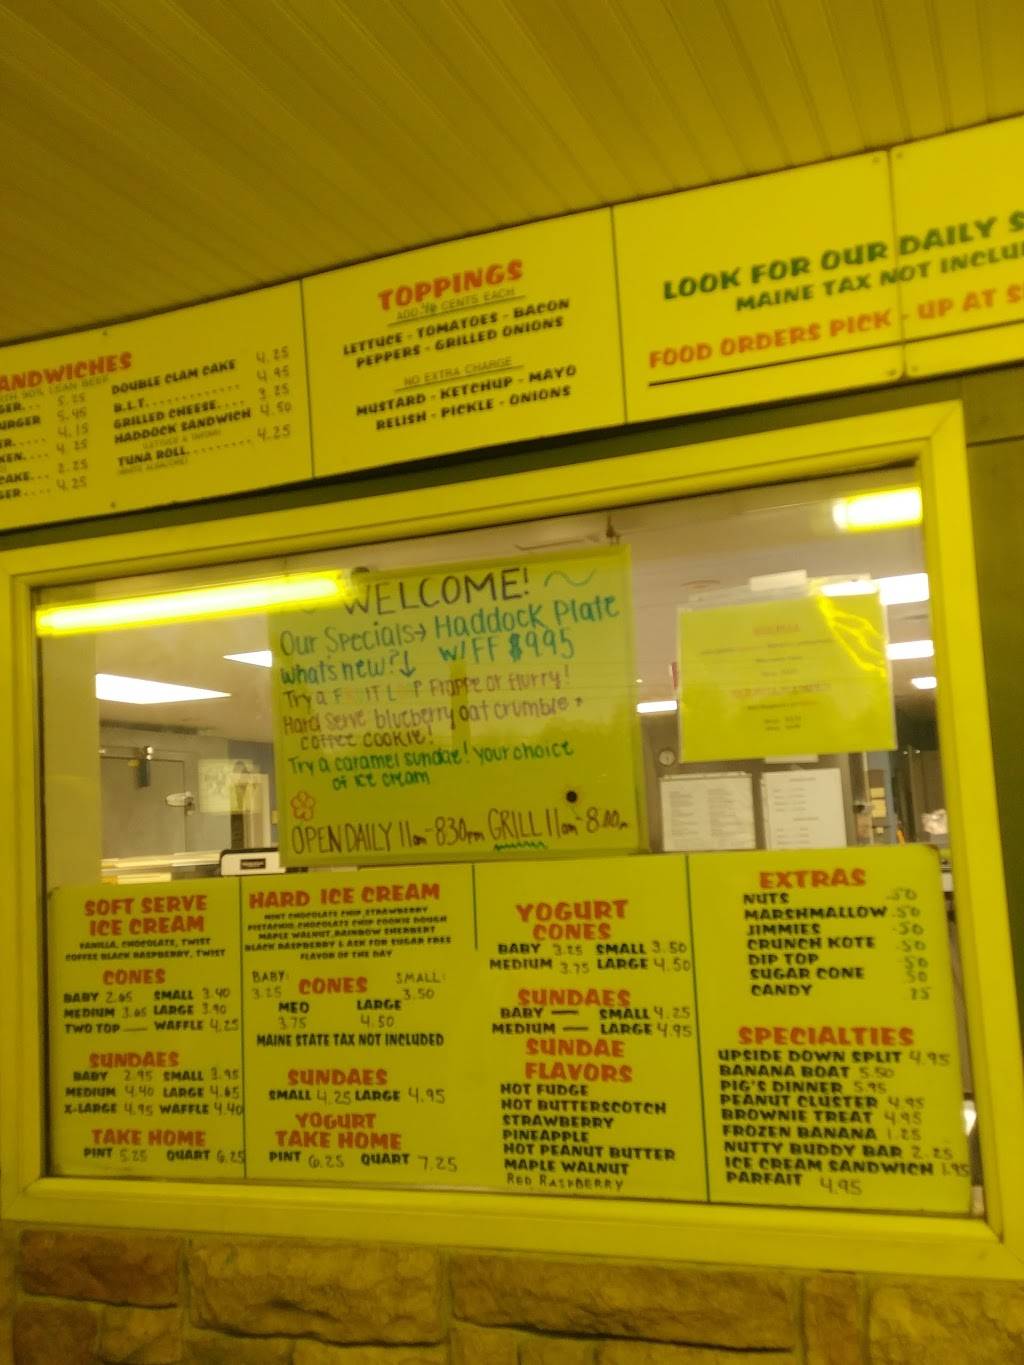 ANDWICHES
TH 90% LEAN BEEF
GER... 5.25
URGER 5.45
ER..... 4.15
KEN.... 4.25
CAKE... 2.25
GER.... 4.25
DOUBLE CLAM CAKE 4.25
B.L.T. 4.95
GRILLED CHEESE.... 3.25
HADDOCK SANDWICH 4.50
TUNA ROLL......... 4.25
TOPPINGS
ADD CENTS EACH
LETTUCE - TOMATOES - BACON
PEPPERS - GRILLED ONIONS
NO EXTRA CHARGE
MUSTARD - KETCHUP - MAYO
RELISH - PICKLE - ONIONS
LOOK FOR OUR DAILY S
MAINE TAX NOT INCLU
FOOD ORDERS PICK - UP AT S
WELCOME!
Our Specials→ Haddock Plate
W/FF $9.95
What's new?↓
Try a FRUIT LOOP Frappe or flurry!
Hard Serve blueberry oat crumble +
coffee cookie!
Try a caramel sundae! your choice
of ice cream
OPEN DAILY 11am-830pm GRILL 11am-800pm
SOFT SERVE
ICE CREAM
VANILLA, CHOCOLATE, TWIST
COFFEE BLACK RASPBERRY, TWIST
CONES
BABY 2.65 SMALL 3.40
MEDIUM 3.65 LARGE 3.90
TWO TOP — WAFFLE 4.25
SUNDAES
BABY 2.95 SMALL 3.95
MEDIUM 4.40 LARGE 4.65
X-LARGE 4.95 WAFFLE 4.40
TAKE HOME
PINT 5.25 QUART 6.25
HARD ICE CREAM
MINT CHOCOLATE CHIP, STRAWBERRY
PISTACHIO, CHOCOLATE CHIP COOKIE DOUGH
MAPLE WALNUT, RAINBOW SHERBERT
BLACK RASPBERRY & ASK FOR SUGAR FREE
FLAVOR OF THE DAY
CONES
BABY: 3.25 SMALL: 3.50
MED 3.75 LARGE 4.50
MAINE STATE TAX NOT INCLUDED
SUNDAES
SMALL 4.25 LARGE 4.95
YOGURT
TAKE HOME
PINT 6.25 QUART 7.25
YOGURT
CONES
BABY 3.25 SMALL 3.50
MEDIUM 3.75 LARGE 4.50
SUNDAES
BABY — SMALL 4.25
MEDIUM — LARGE 4.95
SUNDAE
FLAVORS
HOT FUDGE
HOT BUTTERSCOTCH
STRAWBERRY
PINEAPPLE
HOT PEANUT BUTTER
MAPLE WALNUT
RED RASPBERRY
EXTRAS
NUTS .50
MARSHMALLOW .50
JIMMIES .50
CRUNCH KOTE .50
DIP TOP .50
SUGAR CONE .50
CANDY
SPECIALTIES
UPSIDE DOWN SPLIT 4.95
BANANA BOAT 5.50
PIG'S DINNER 5.95
PEANUT CLUSTER 4.95
BROWNIE TREAT 4.95
FROZEN BANANA 1.25
NUTTY BUDDY BAR 2.25
ICE CREAM SANDWICH 1.95
PARFAIT 4.95